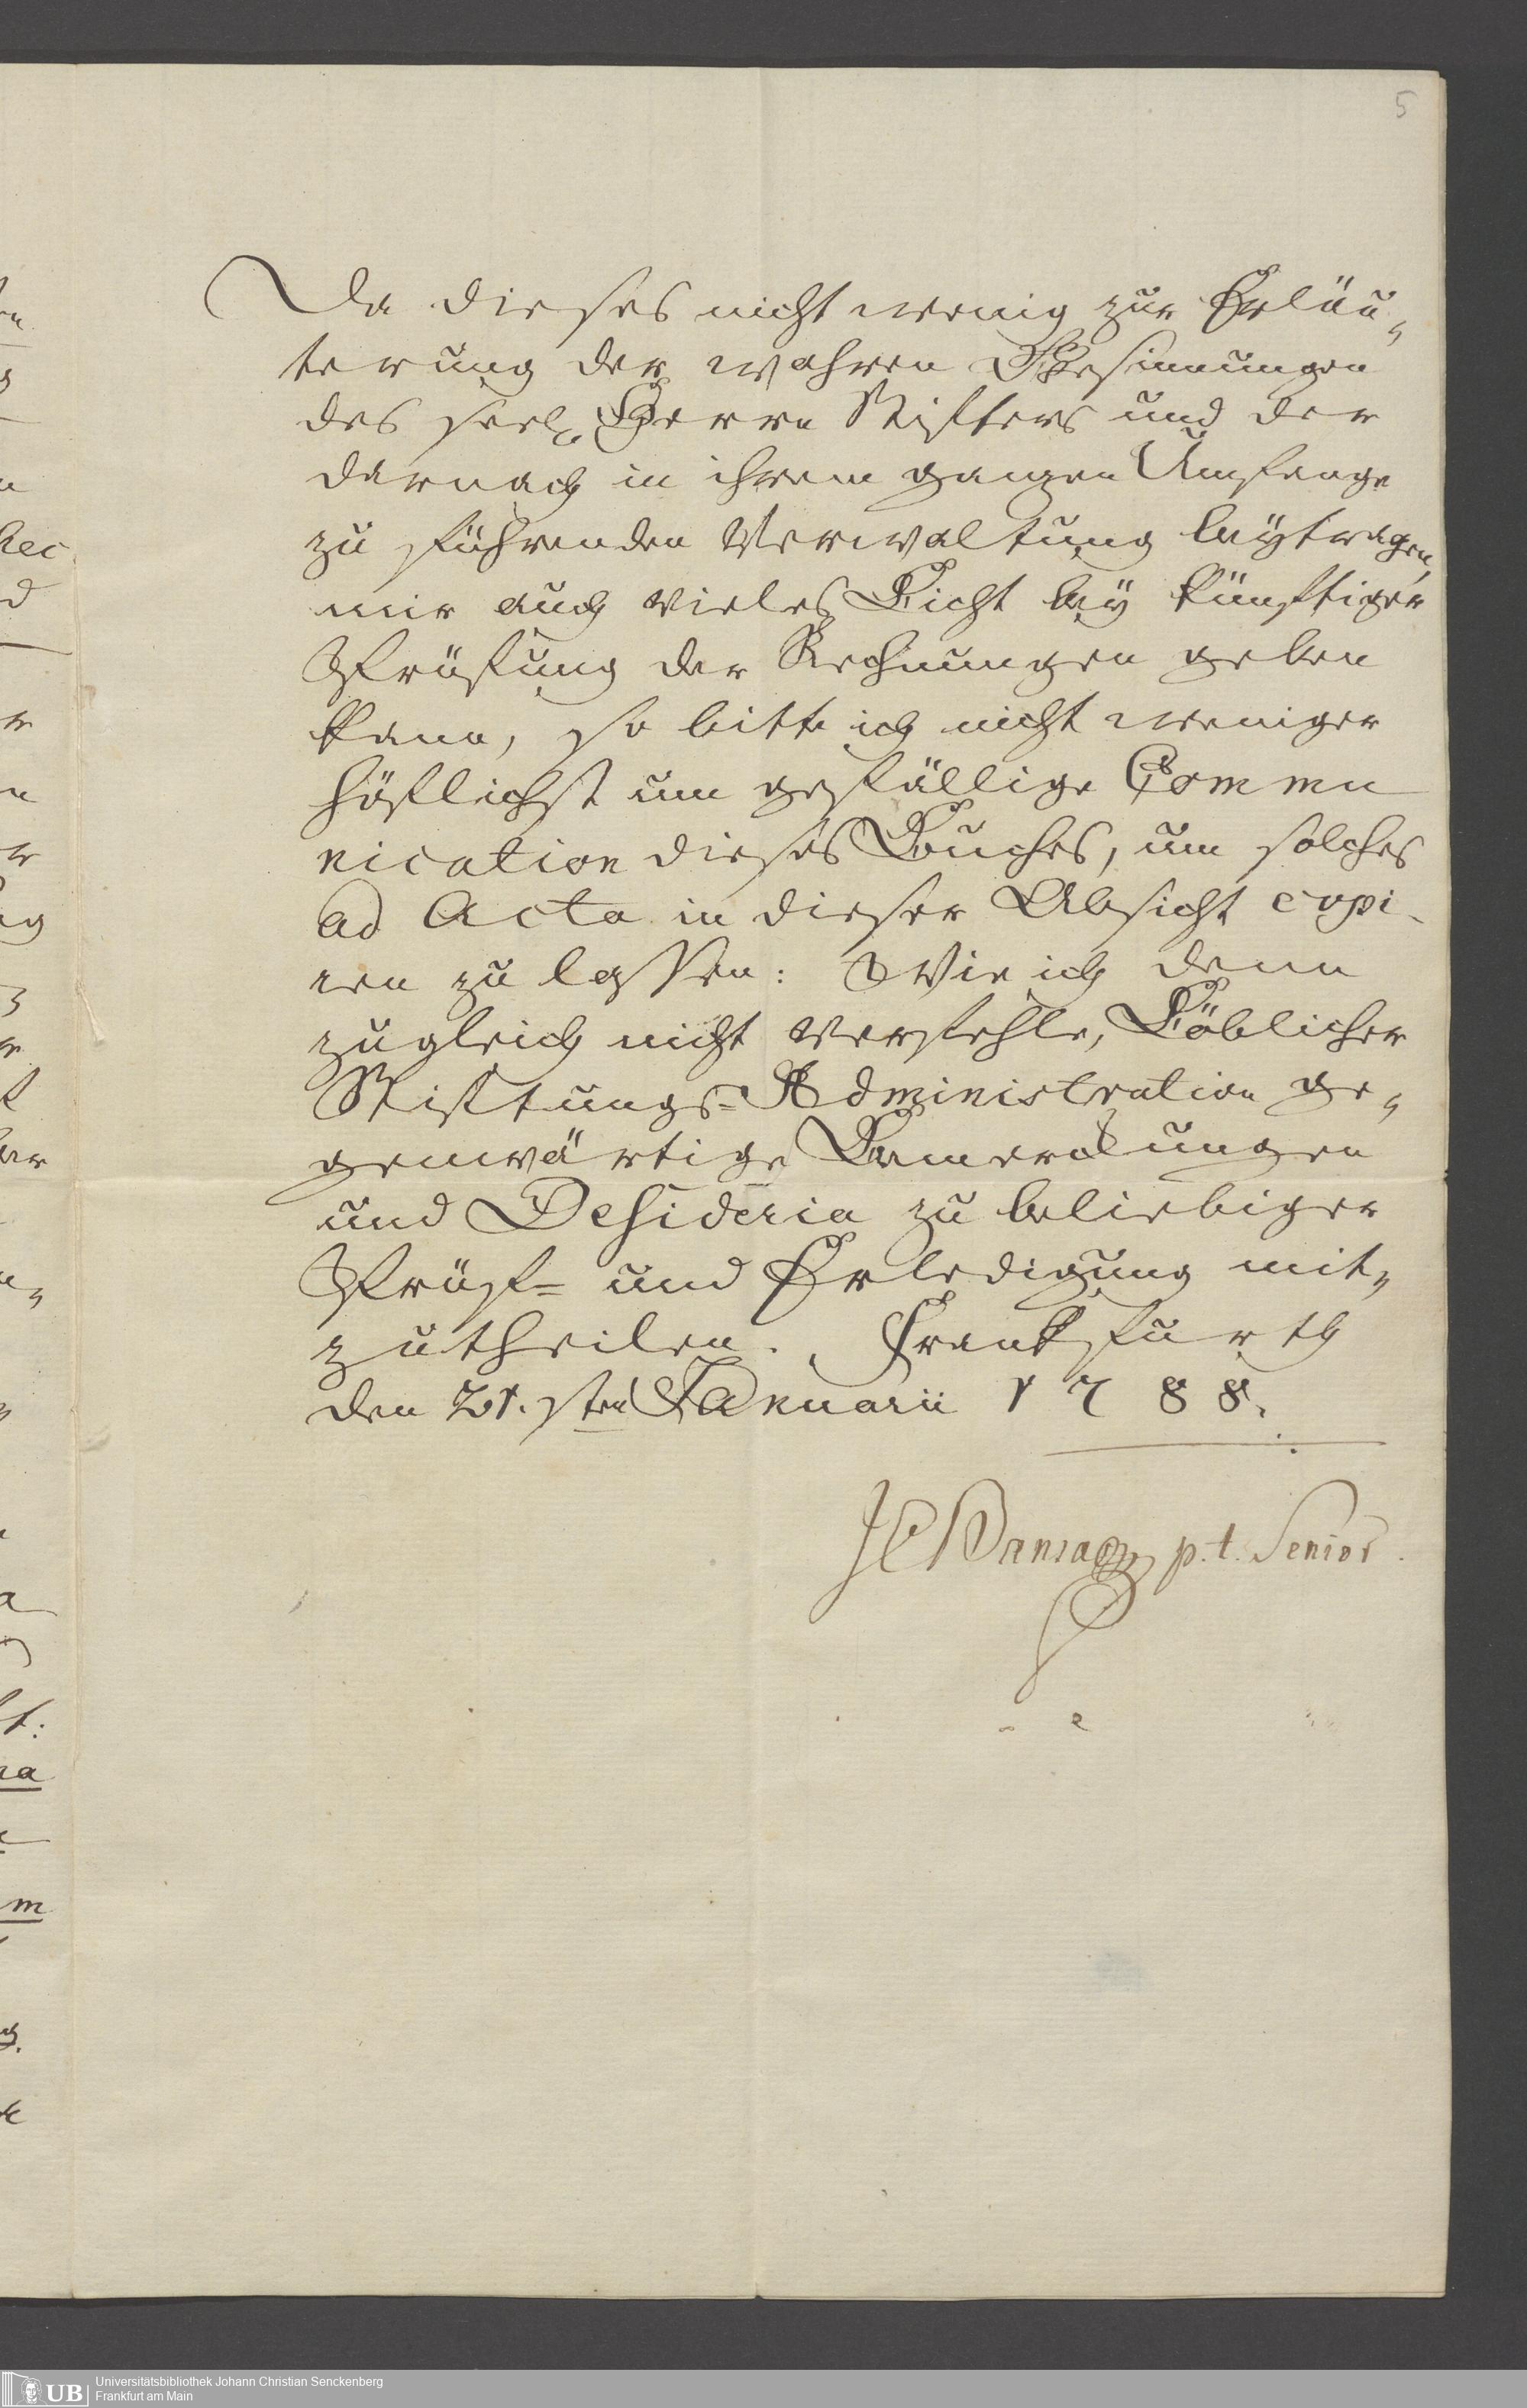 5
Da dieses nicht wenig zur Erläu„
terung der wahren Gesinnungen
des seel. Herrn Stifters und der
darnach in ihrem ganzen Umfange
zu führenden Verwaltung beytragen,
mir auch vieles Licht bey künftiger
Prüfung der Rechnungen geben
kann, so bitte ich nicht weniger
höflichst um gefällige Commu
nication dieses Buches, um solches
ad Acta in dieser Absicht copi-
ren zu lassen: Wie ich denn
zugleich nicht verfehle, Löblicher
Stiftungs-Administration ge„
genwärtige Bemerkungen
und Desideria zu beliebiger
Prüf- und Erledigung mit„
zutheilen. Frankfurth
den 21.sten Januarii 1788.
p. t. Senior.
UB
Universitätsbibliothek Johann Christian Senckenberg
Frankfurt am Main